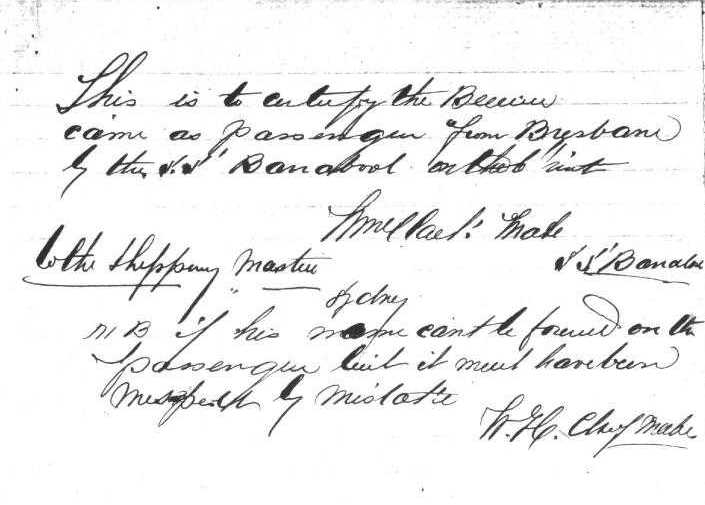 This is to certify the Bearer
came as passenger from Brisbane
by the S.S. Barrabool on the 6th inst
Mate
to the Shippeng Master
S S Barrabool
Sydney
N B if his name cant be found on the
passenger list it must have been
by mistake
W. H. Mate